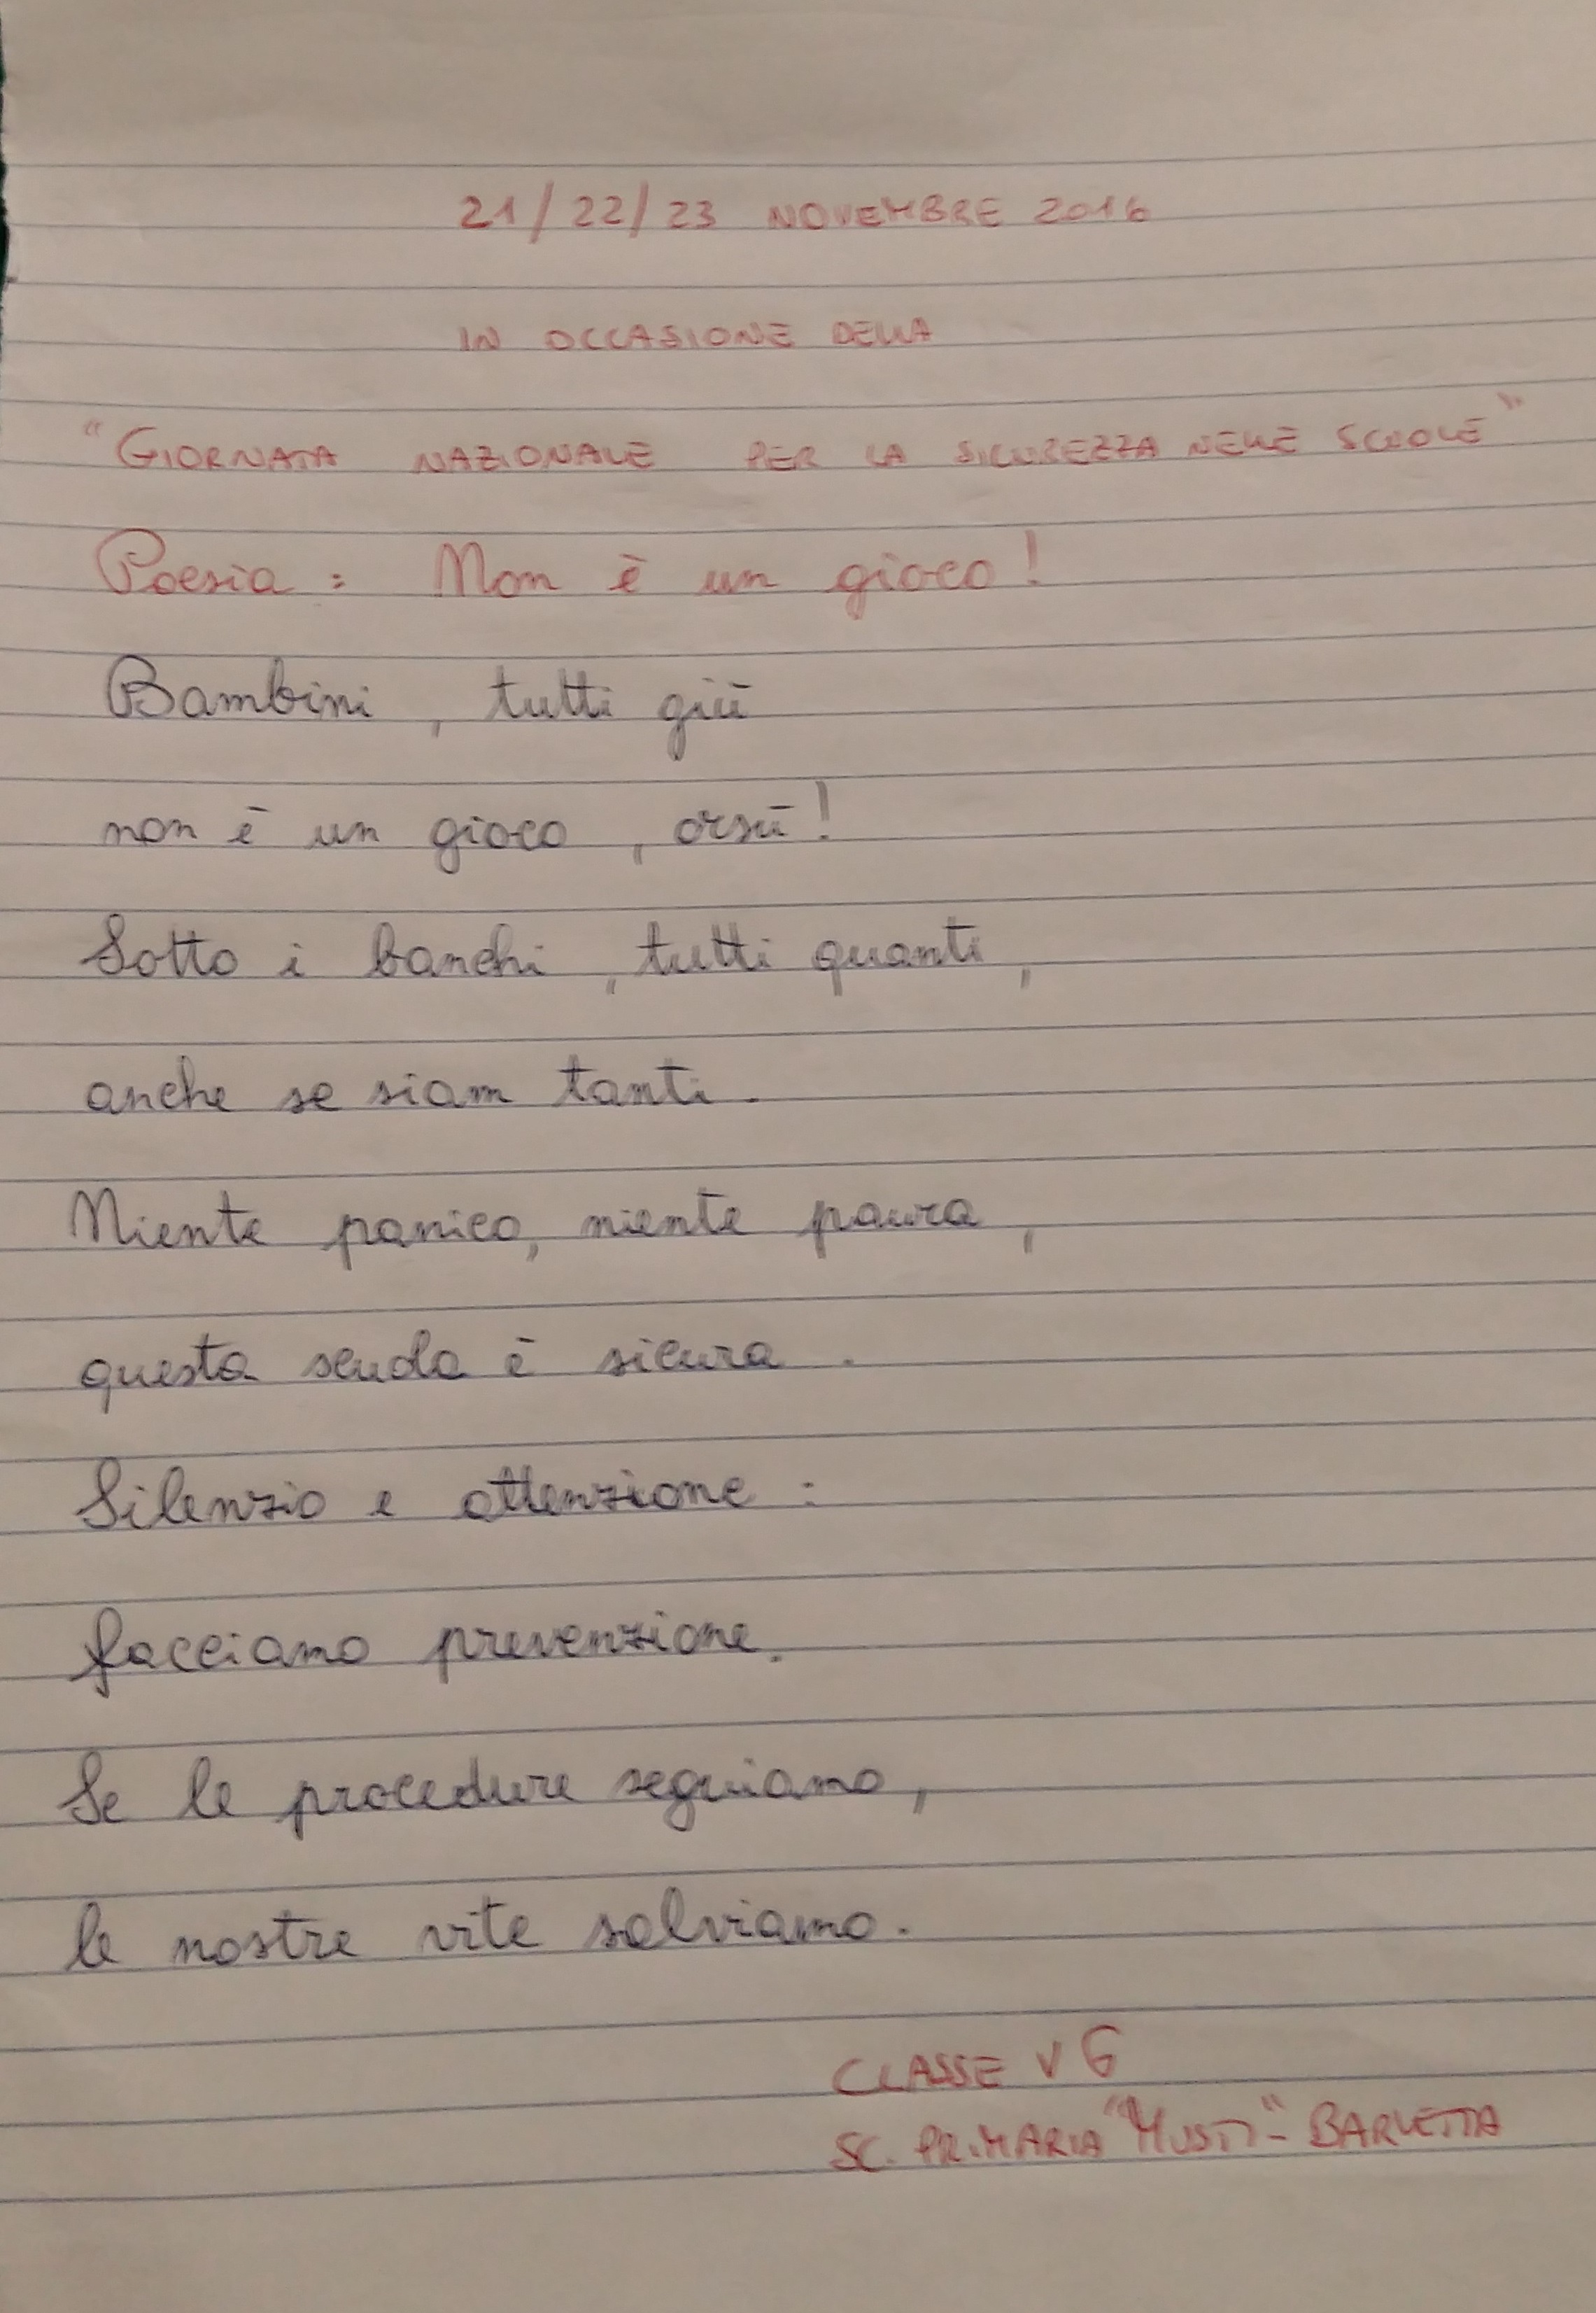 21/22/23 NOVEMBRE 2016
IN OCCASIONE DELLA
"GIORNATA NAZIONALE PER LA SICUREZZA NELLE SCUOLE"
Poesia: Non è un gioco!
Bambini, tutti giù
non è un gioco, orsù!
Sotto i banchi, tutti quanti,
anche se siam tanti.
Niente panico, niente paura,
questa scuola è sicura.
Silenzio e attenzione:
facciamo prevenzione.
Se le procedure seguiamo,
le nostre vite salviamo.
CLASSE V G
SC. PRIMARIA "MUSTI" - BARLETTA